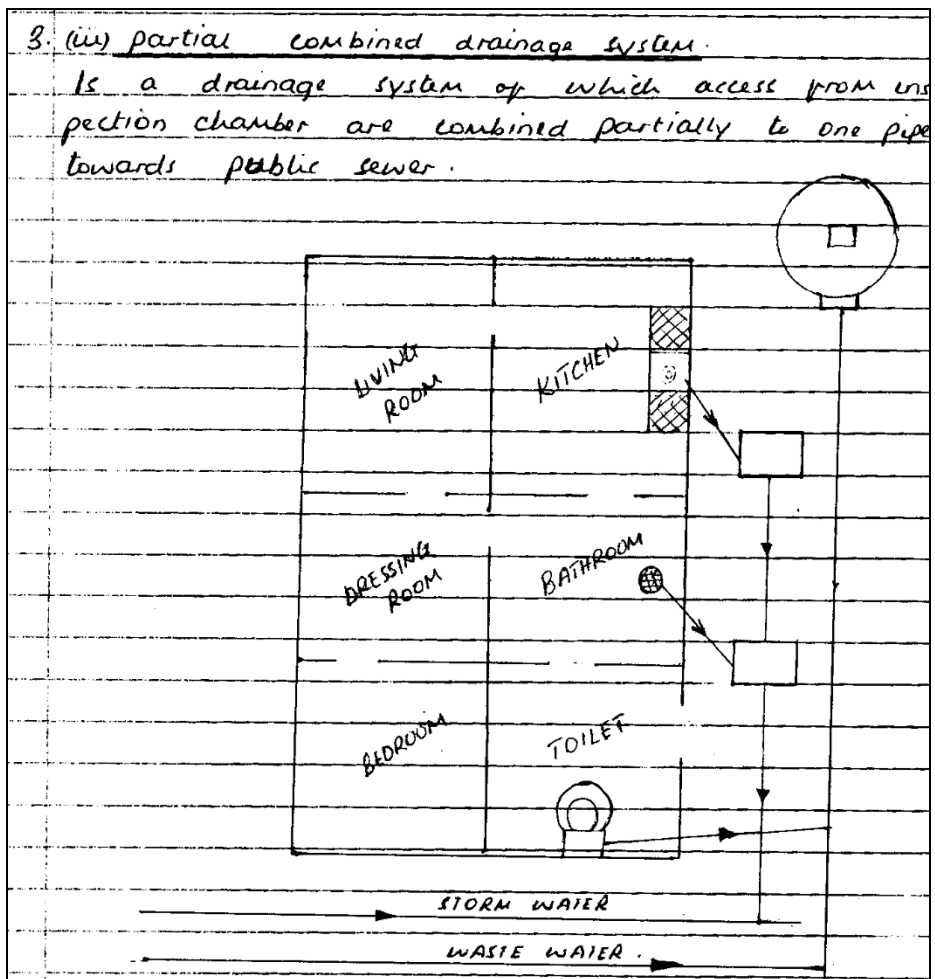 3. (iii) partial combined drainage system.
Is a drainage system of which access from ins
pection chamber are combined partially to one pipe
towards public sewer.
LIVING
ROOM
KITCHEN
DRESSING
ROOM
BATHROOM
BEDROOM
TOILET
STORM WATER
WASTE WATER.